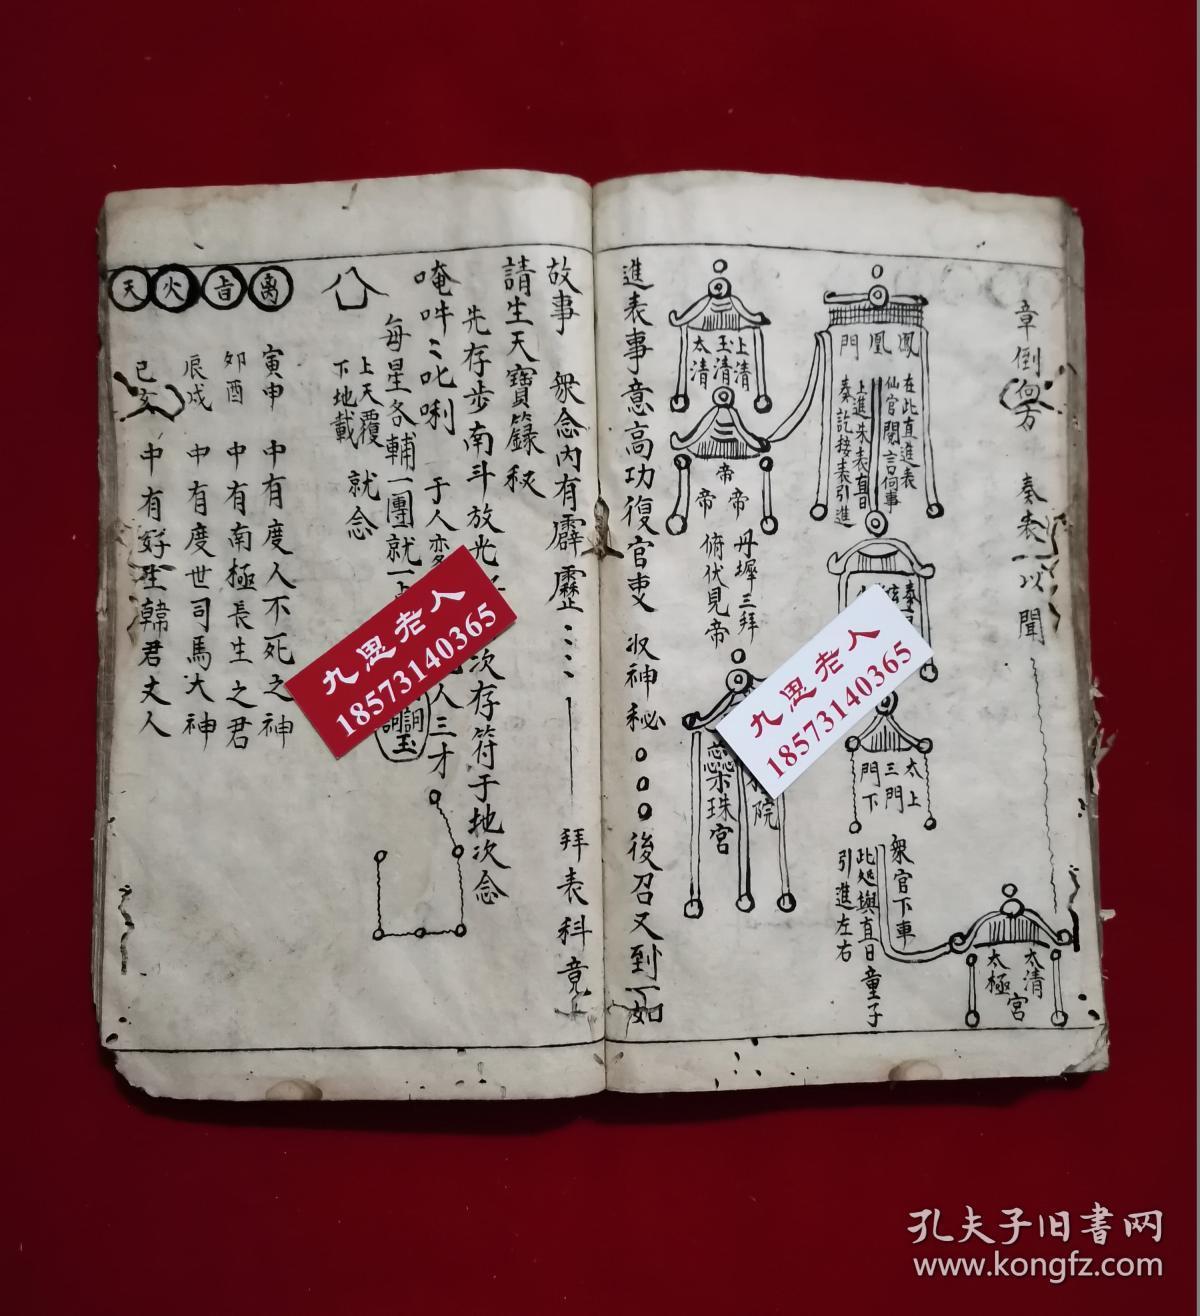 章倒向 奏表以聞
鳳凰門
在此直進表
仙官閱言何事
上進朱表直日
奏訖接表引進
上清
玉清
太清
帝帝帝
丹墀三拜
俯伏見帝
蕊珠宮
院
太上
三門
門下
眾官下車
此処與直日童子
引進左右
太清
太極宮
進表事意高功復官吏 收神秘 後召又到如
故事 眾念內有霹靂 拜表科竟
請生天寶籙秘
先存步南斗放光 次存符于地次念
唵吽叱唎 于人 人三才
每星各輔一團就一
上天覆
下地載 就念
天火
寅申 中有度人不死之神
卯酉 中有南極長生之君
辰戌 中有度世司馬大神
巳亥 中有好生韓君丈人
九思老人
18573140365
九思老人
18573140365
孔夫子旧書网
www.kongfz.com